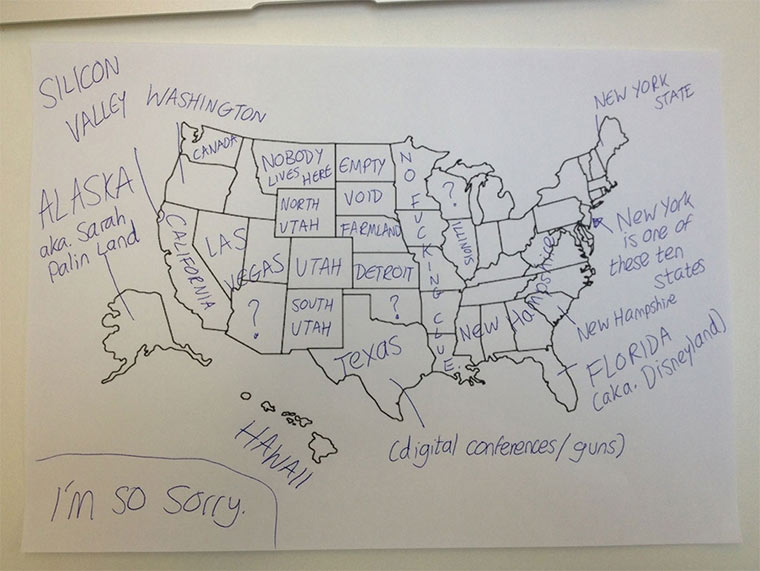 SILICON
VALLEY
WASHINGTON
NEW YORK
STATE
CANADA
NOBODY
LIVES HERE
EMPTY
NO FUCKING CLUE.
?
ALASKA
aka. Sarah
Palin Land
NORTH
UTAH
VOID
FARMLAND
ILLINOIS
New York
is one of
these ten
states
CALIFORNIA
LAS
VEGAS
UTAH
DETROIT
?
SOUTH
UTAH
?
New Hampshire
New Hampshire
Texas
FLORIDA
(aka. Disneyland)
HAWAII
(digital conferences/guns)
I'm so sorry.